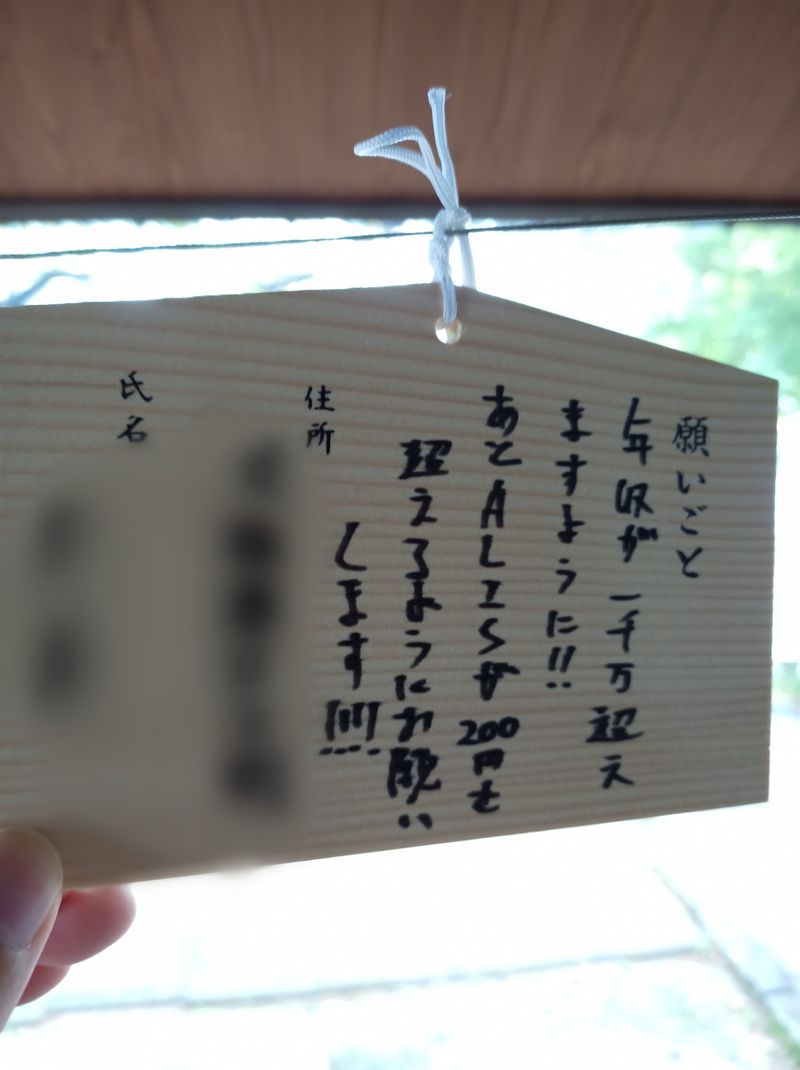 願いごと
年収が一千万超え
ますように!!
あとALISが200円を
超えるようにお願い
します!!!!
住所
氏名